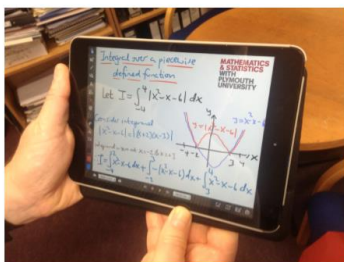 Integral over a piecewise
defined function
MATHEMATICS
& STATISTICS
WITH
PLYMOUTH
UNIVERSITY
Let I = ∫₋₄⁴ |x²-x-6| dx
Consider integrand
|x²-x-6| = |(x+2)(x-3)|
y
x
-4
3 4
I = ∫₋₄⁻² x²-x-6 dx + ∫₋₂³ -(x²-x-6) dx + ∫₃⁴ x²-x-6 dx